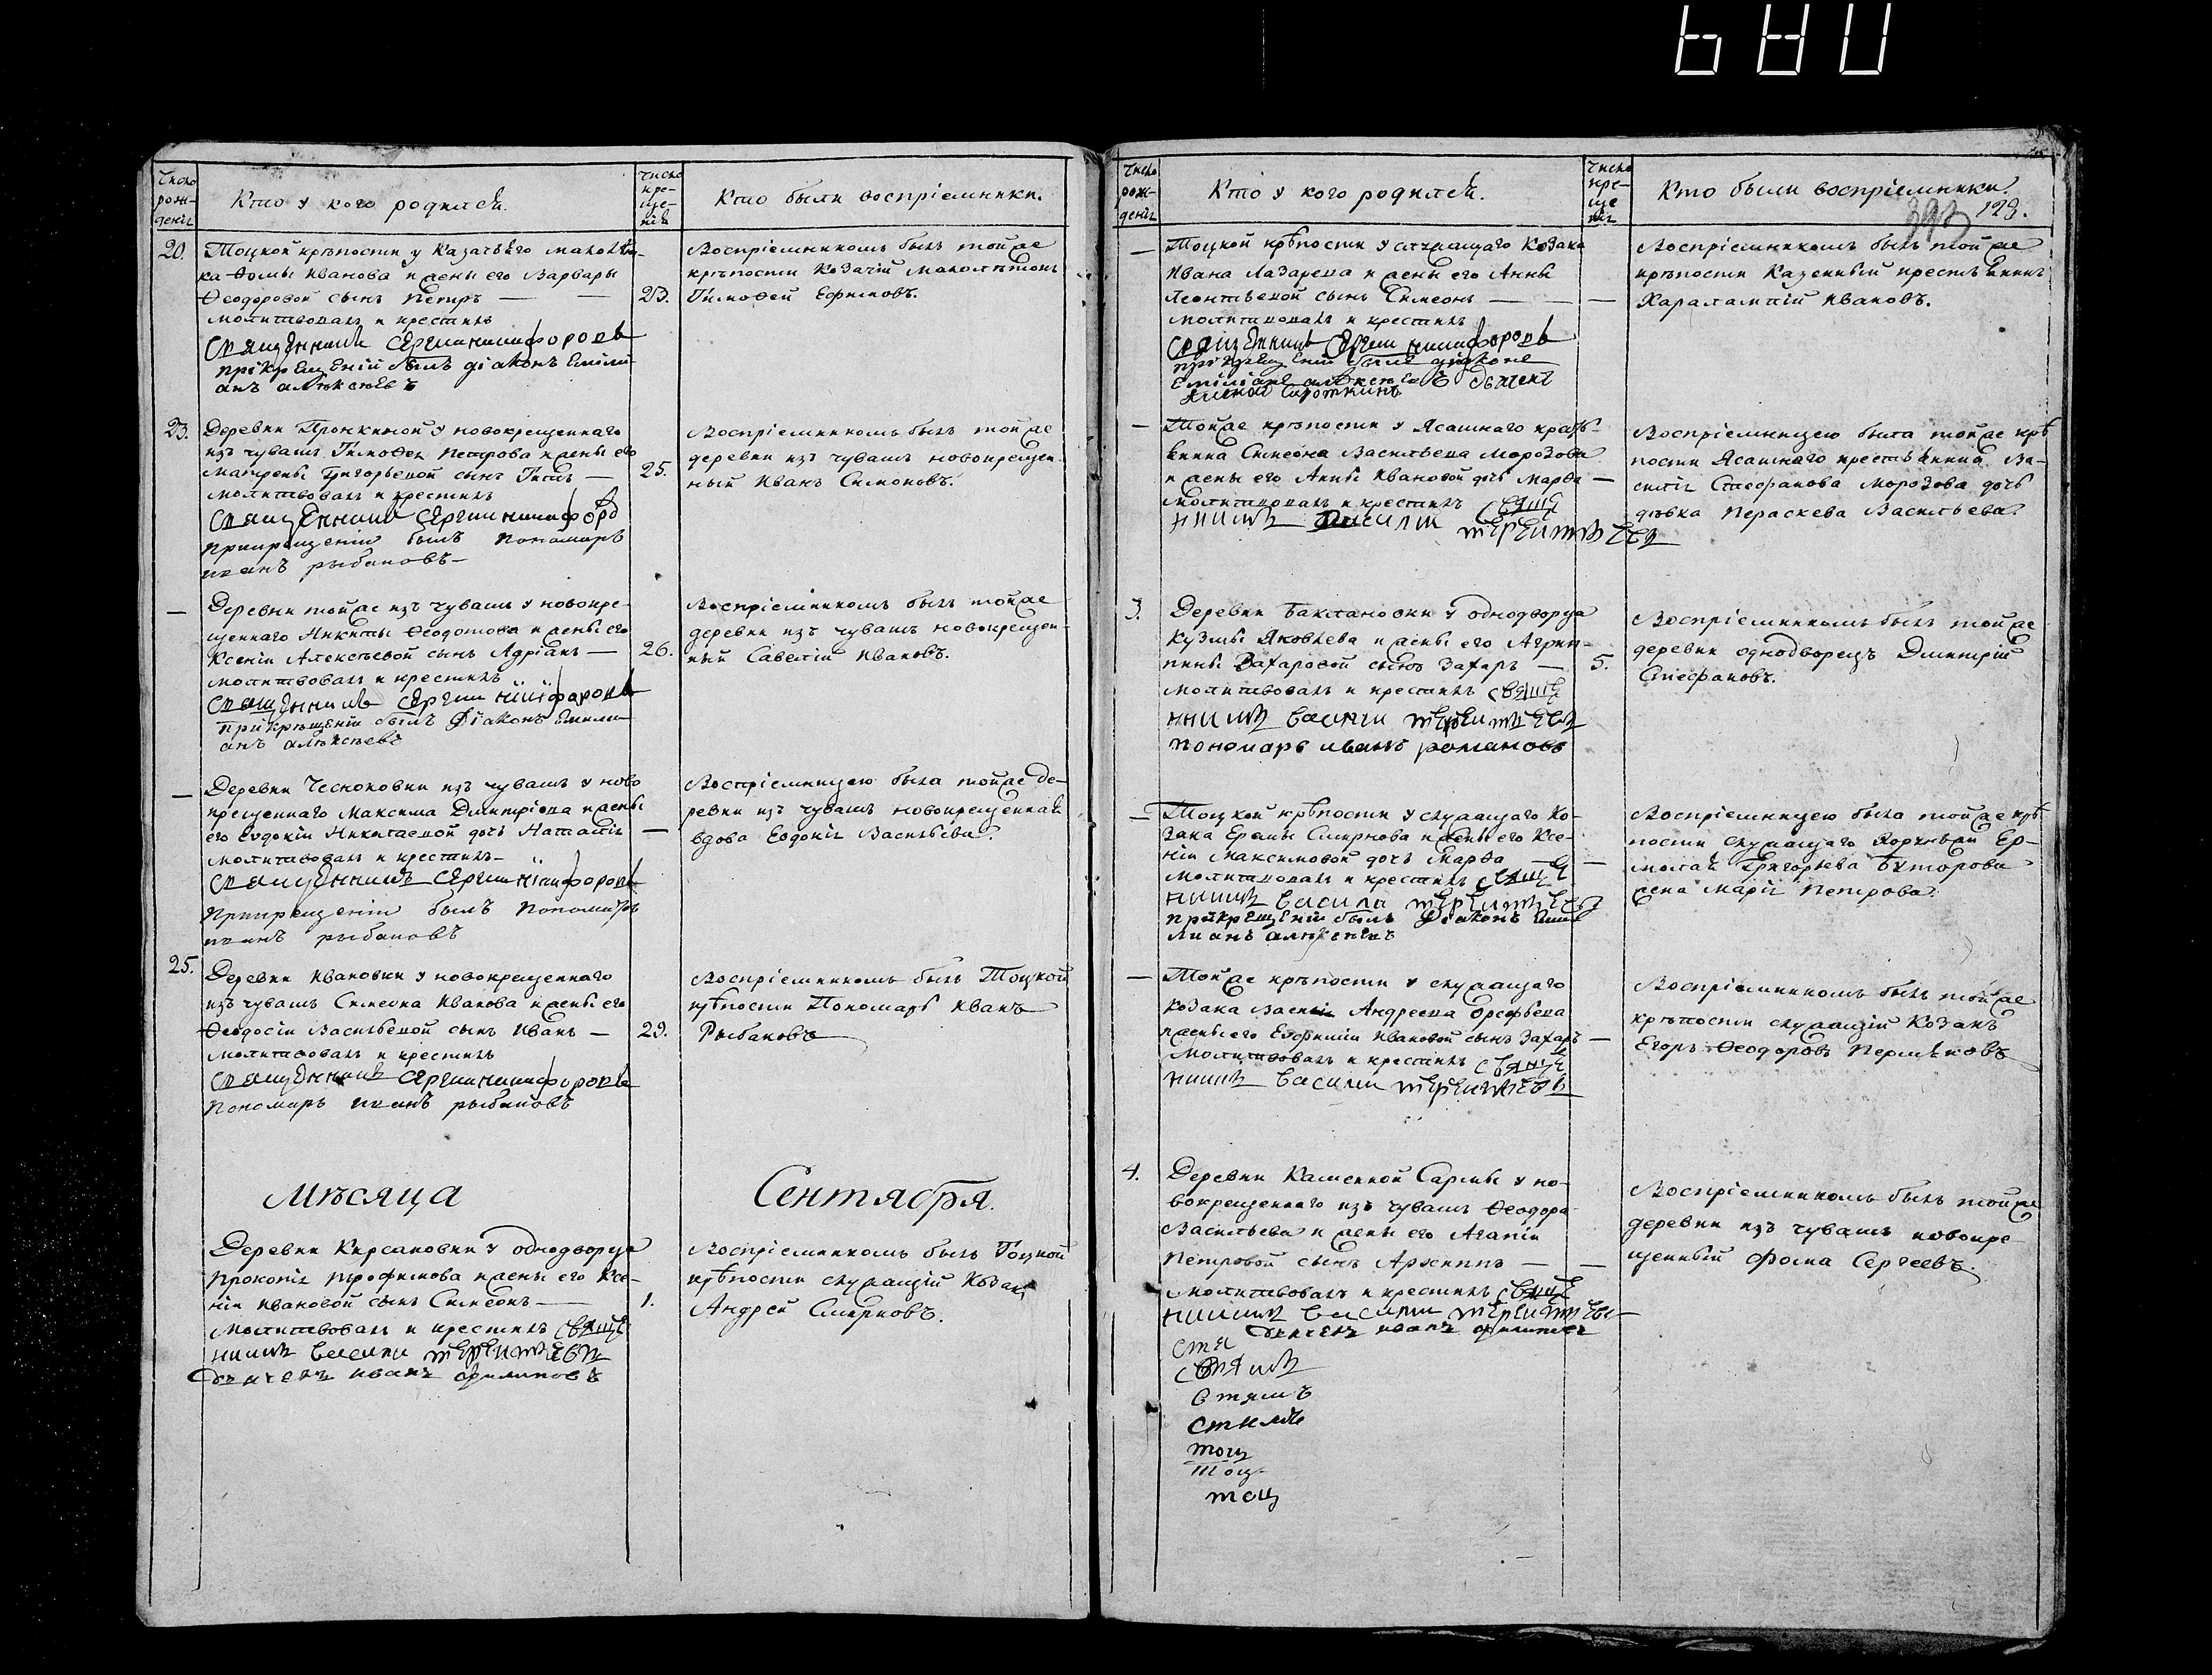 Число рож-денія
Кто у кого родился.
Число кре-ще-нія
Кто были воспріемники.
20.
Тоцкой крѣпости у Казачьяго малолѣт-
ка Ѳомы Иванова и жены его Варвары
Ѳеодоровой сынъ Петръ — —
23.
молитвовалъ и крестилъ
священникъ Сергии никифоровъ
прікрещеніи былъ діаконъ Емілі
анъ алѣксѣевъ
Воспріемникомъ былъ тойже
крѣпости Козачій малолѣтокъ
Тимоѳей Ефимовъ.
23.
Деревни Пронкиной у новокрещеннаго
изъ чувашъ Тимоѳея Петрова и жены его
Матрены Григорьевой сынъ Титъ —
25.
молитвовалъ и крестилъ
священникъ Сергии
Прикрещеніи былъ Пономарь
иванъ рыбаковъ
Воспріемникомъ былъ тойже
деревни изъ чувашъ новокрещен-
ный Иванъ Симоновъ.
—
Деревни тойже изъ чувашъ у новокре-
щеннаго Никиты Ѳеодотова и жены его
Ксеніи Алексѣевой сынъ Адріанъ —
26.
молитвовалъ и крестилъ
священникъ Сергии нікіфоровъ
Прикрѣщеніи былъ Діаконъ Емили
анъ алѣксѣевъ
Воспріемникомъ былъ тойже
деревни изъ чувашъ новокрещен-
ный Савелій Ивановъ.
—
Деревни Чесноковки изъ чувашъ у ново
крещеннаго Максима Димитріева и жены
его Евдокіи Николаевой дочь Наталія
—
молитвовалъ и крестилъ
священникъ Сергии нікифоровъ
Прикрещеніи былъ Пономарь
иванъ рыбаковъ
Воспріемницею была тойже де-
ревни изъ чувашъ новокрещенная
вдова Евдокія Васильева.
25.
Деревни Ивановки у новокрещеннаго
изъ чувашъ Симеона Иванова и жены его
Ѳеодосіи Васильевой сынъ Иванъ —
29.
молитвовалъ и крестилъ
священникъ Сергии никифоровъ
Пономарь иванъ рыбаковъ
Воспріемникомъ былъ Тоцкой
крѣпости Пономарь Иванъ
Рыбаковъ
Мѣсяца
Сентября.
Деревни Кирсановки у однодворца
Прокопія Трофимова и жены его Ксе-
ніи Ивановой сынъ Симеонъ —
1.
молитвовалъ и крестилъ свяще
нникъ василии терентиевъ
дьячекъ иванъ филиповъ
Воспріемникомъ былъ Тоцкой
крѣпости служащій Козакъ
Андрей Смирновъ.
Число рож-денія
Кто у кого родился.
Число кре-ще нія
Кто были воспріемники.
393
123.
—
Тоцкой крѣпости у служащаго Козака
Ивана Лазарева и жены его Анны
Леонтьевой сынъ Симеонъ —
—
молитвовалъ и крестилъ
священникъ Сергии никифоровъ
прікрещеніи былъ діяконъ
Еміліанъ алѣксѣевъ дьячекъ
Воспріемникомъ былъ тойже
крѣпости Казенный крестьянинъ
Харалампій Ивановъ.
—
Тойже крѣпости у Ясашнаго кресть-
янина Симеона Васильева Морозова
и жены его Анны Ивановой дочь Марѳа
—
молитвовалъ и крестилъ свяще
нникъ василии терентиевъ
Воспріемницею была тойже крѣ
пости Ясашнаго крестьянина Ва-
силія Стефанова Морозова дочь
дѣвка Параскева Васильева.
3.
Деревни Баклановки у однодворца
Кузмы Яковлева и жены его Агрип-
пины Захаровой сынъ Захаръ —
5.
молитвовалъ и крестилъ свяще
нникъ василии терентиевъ
пономарь иванъ романовъ
Воспріемникомъ былъ тойже
деревни однодворецъ Димитрій
Стефановъ.
—
Тоцкой крѣпости у служащаго Ко-
зака Еремы Смирнова и жены его Ксе-
ніи Максимовой дочь Марѳа
—
молитвовалъ и крестилъ свяще
нникъ василии терентиевъ
прикрещеніи былъ Діаконъ Еми
лианъ алѣксеевъ
Воспріемницею была тойже крѣ-
пости служащаго Ер-
молая Григорьева Буторова
жена Марія Петрова.
—
Тойже крѣпости у служащаго
Козака Василія Андреева
и жены его Евфиміи Ивановой сынъ Захаръ
—
молитвовалъ и крестилъ свяще
нникъ василии терентиевъ
Воспріемникомъ былъ тойже
крѣпости служащій Козакъ
Егоръ Ѳеодоровъ Пермяковъ
4.
Деревни Каменной Сармы у но-
вокрещеннаго изъ чувашъ Ѳеодора
Васильева и жены его Агапіи
Петровой сынъ Архиппъ —
—
молитвовалъ и крестилъ свяще
нникъ василии терентиевъ
дьячекъ иванъ филиповъ
Воспріемникомъ былъ тойже
деревни изъ чувашъ новокре
щенный Фома Сергеевъ.
стя
тоц
тоц
тоц